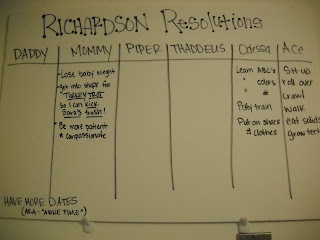 RICHARDSON Resolutions
DADDY MOMMY PIPER THADDEUS Carissa Ace
-Lose baby weight
-Get into shape for
TURKEY TROT
so I can KICK
Sara's trash!
-Be more patient
& compassionate
Learn ABC's
" colors
" #
Potty train
Put on shoes
& clothes
Sit up
roll over
crawl
walk
eat solids
grow teeth
HAVE MORE DATES
(AKA - "ALONE TIME")